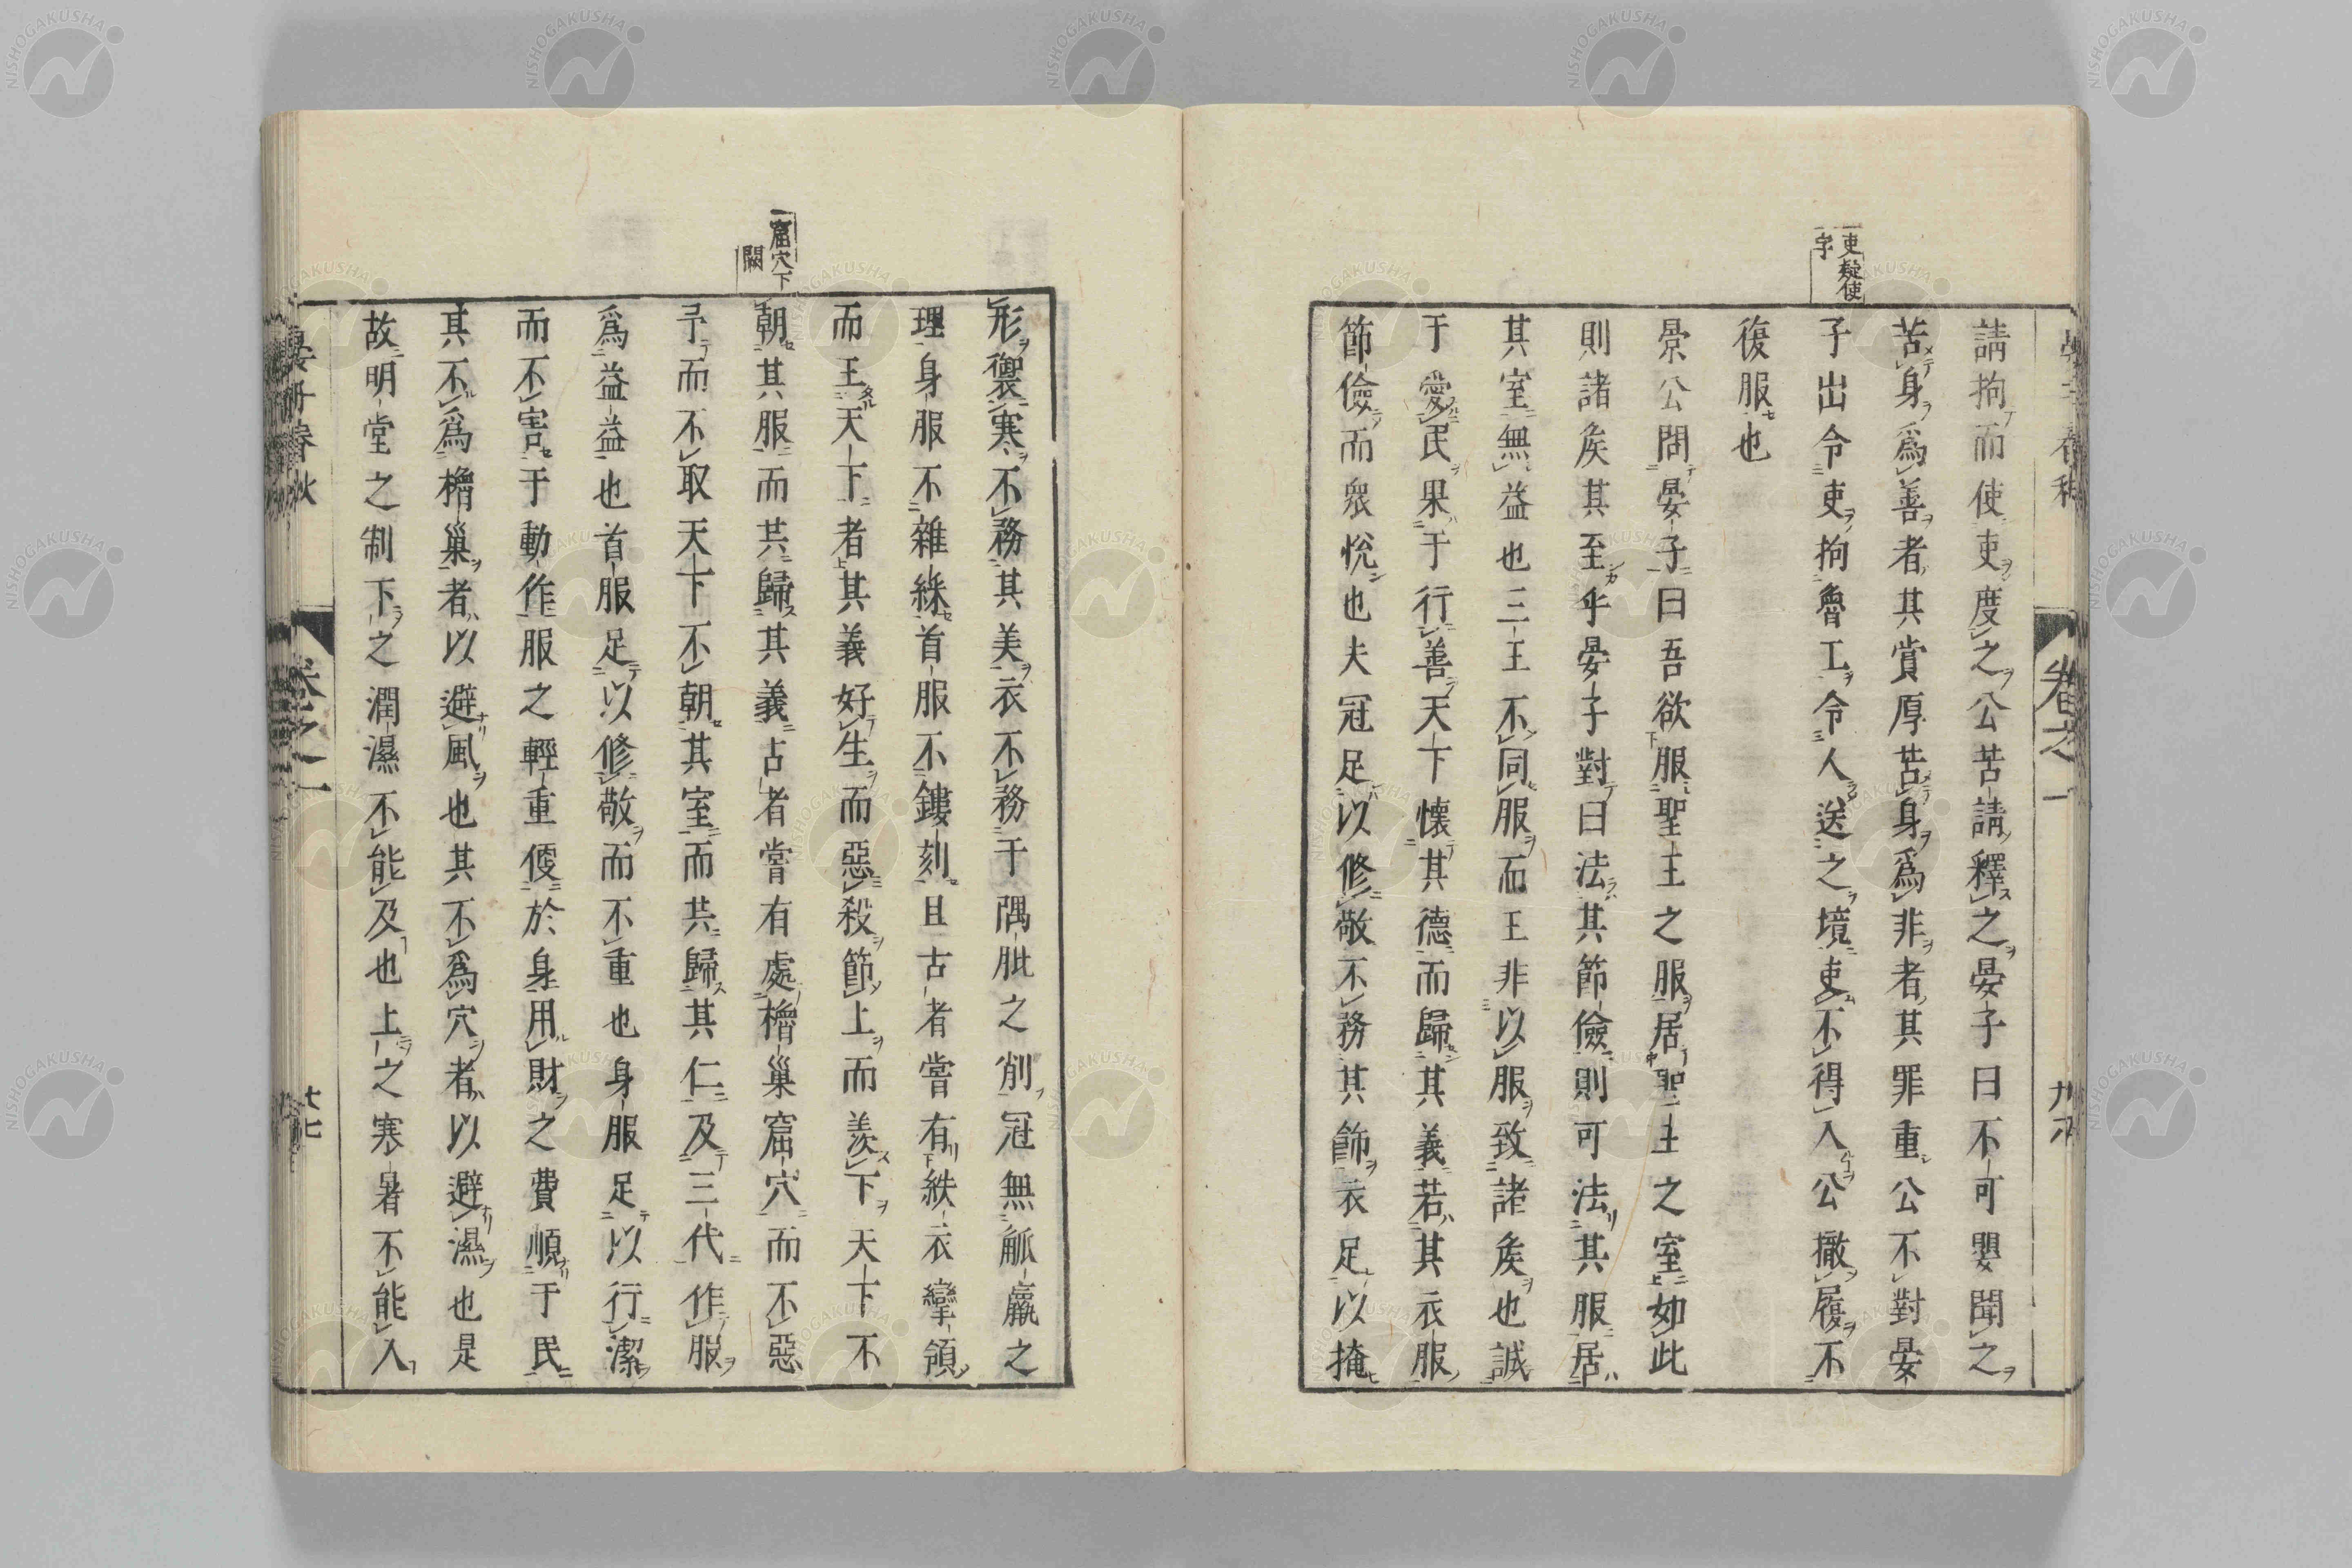 晏子春秋　卷之一
吏疑使
字
請拘而使吏度之公苦請釋之晏子曰不可嬰聞之
苦身爲善者其賞厚苦身爲非者其罪重公不對晏
子出令吏拘魯工令人送之境吏不得入公撤履不
復服也
景公問晏子曰吾欲服聖王之服居聖王之室如此
則諸矦其至乎晏子對曰法其節儉則可法其服居
其室無益也三王不同服而王非以服致諸矦也誠
于愛民果于行善天下懷其德而歸其義若其衣服
節儉而衆悅也夫冠足以修敬不務其飾衣足以掩
窟穴下
闕
形禦寒不務其美衣不務于隅肶之削冠無觚羸之
理身服不雜綵首服不鏤刻且古者嘗有紩衣攣領
而王天下者其義好生而惡殺節上而羨下天下不
朝其服而共歸其義古者嘗有處橧巢窟穴而不惡
予而不取天下不朝其室而共歸其仁及三代作服
爲益益也首服足以修敬而不重也身服足以行潔
而不害于動作服之輕重便於身用財之費順于民
其不爲橧巢者以避風也其不爲穴者以避濕也是
故明堂之制下之潤濕不能及也上之寒暑不能入
晏子春秋　卷之一　廿七
NISHOGAKUSHA